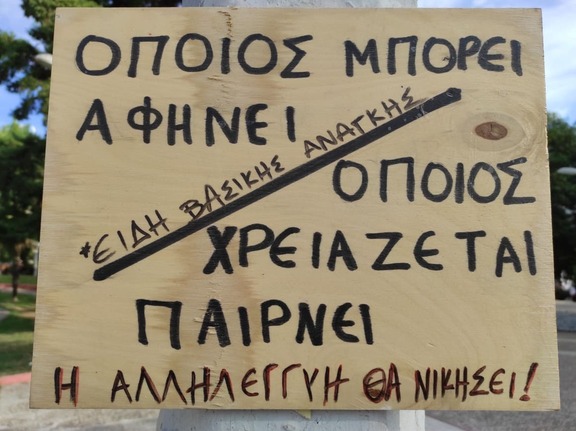 ΟΠΟΙΟΣ ΜΠΟΡΕΙ
ΑΦΗΝΕΙ
*ΕΙΔΗ ΒΑΣΙΚΗΣ ΑΝΑΓΚΗΣ
ΟΠΟΙΟΣ
ΧΡΕΙΑΖΕΤΑΙ
ΠΑΙΡΝΕΙ
Η ΑΛΛΗΛΕΓΓΥΗ ΘΑ ΝΙΚΗΣΕΙ!